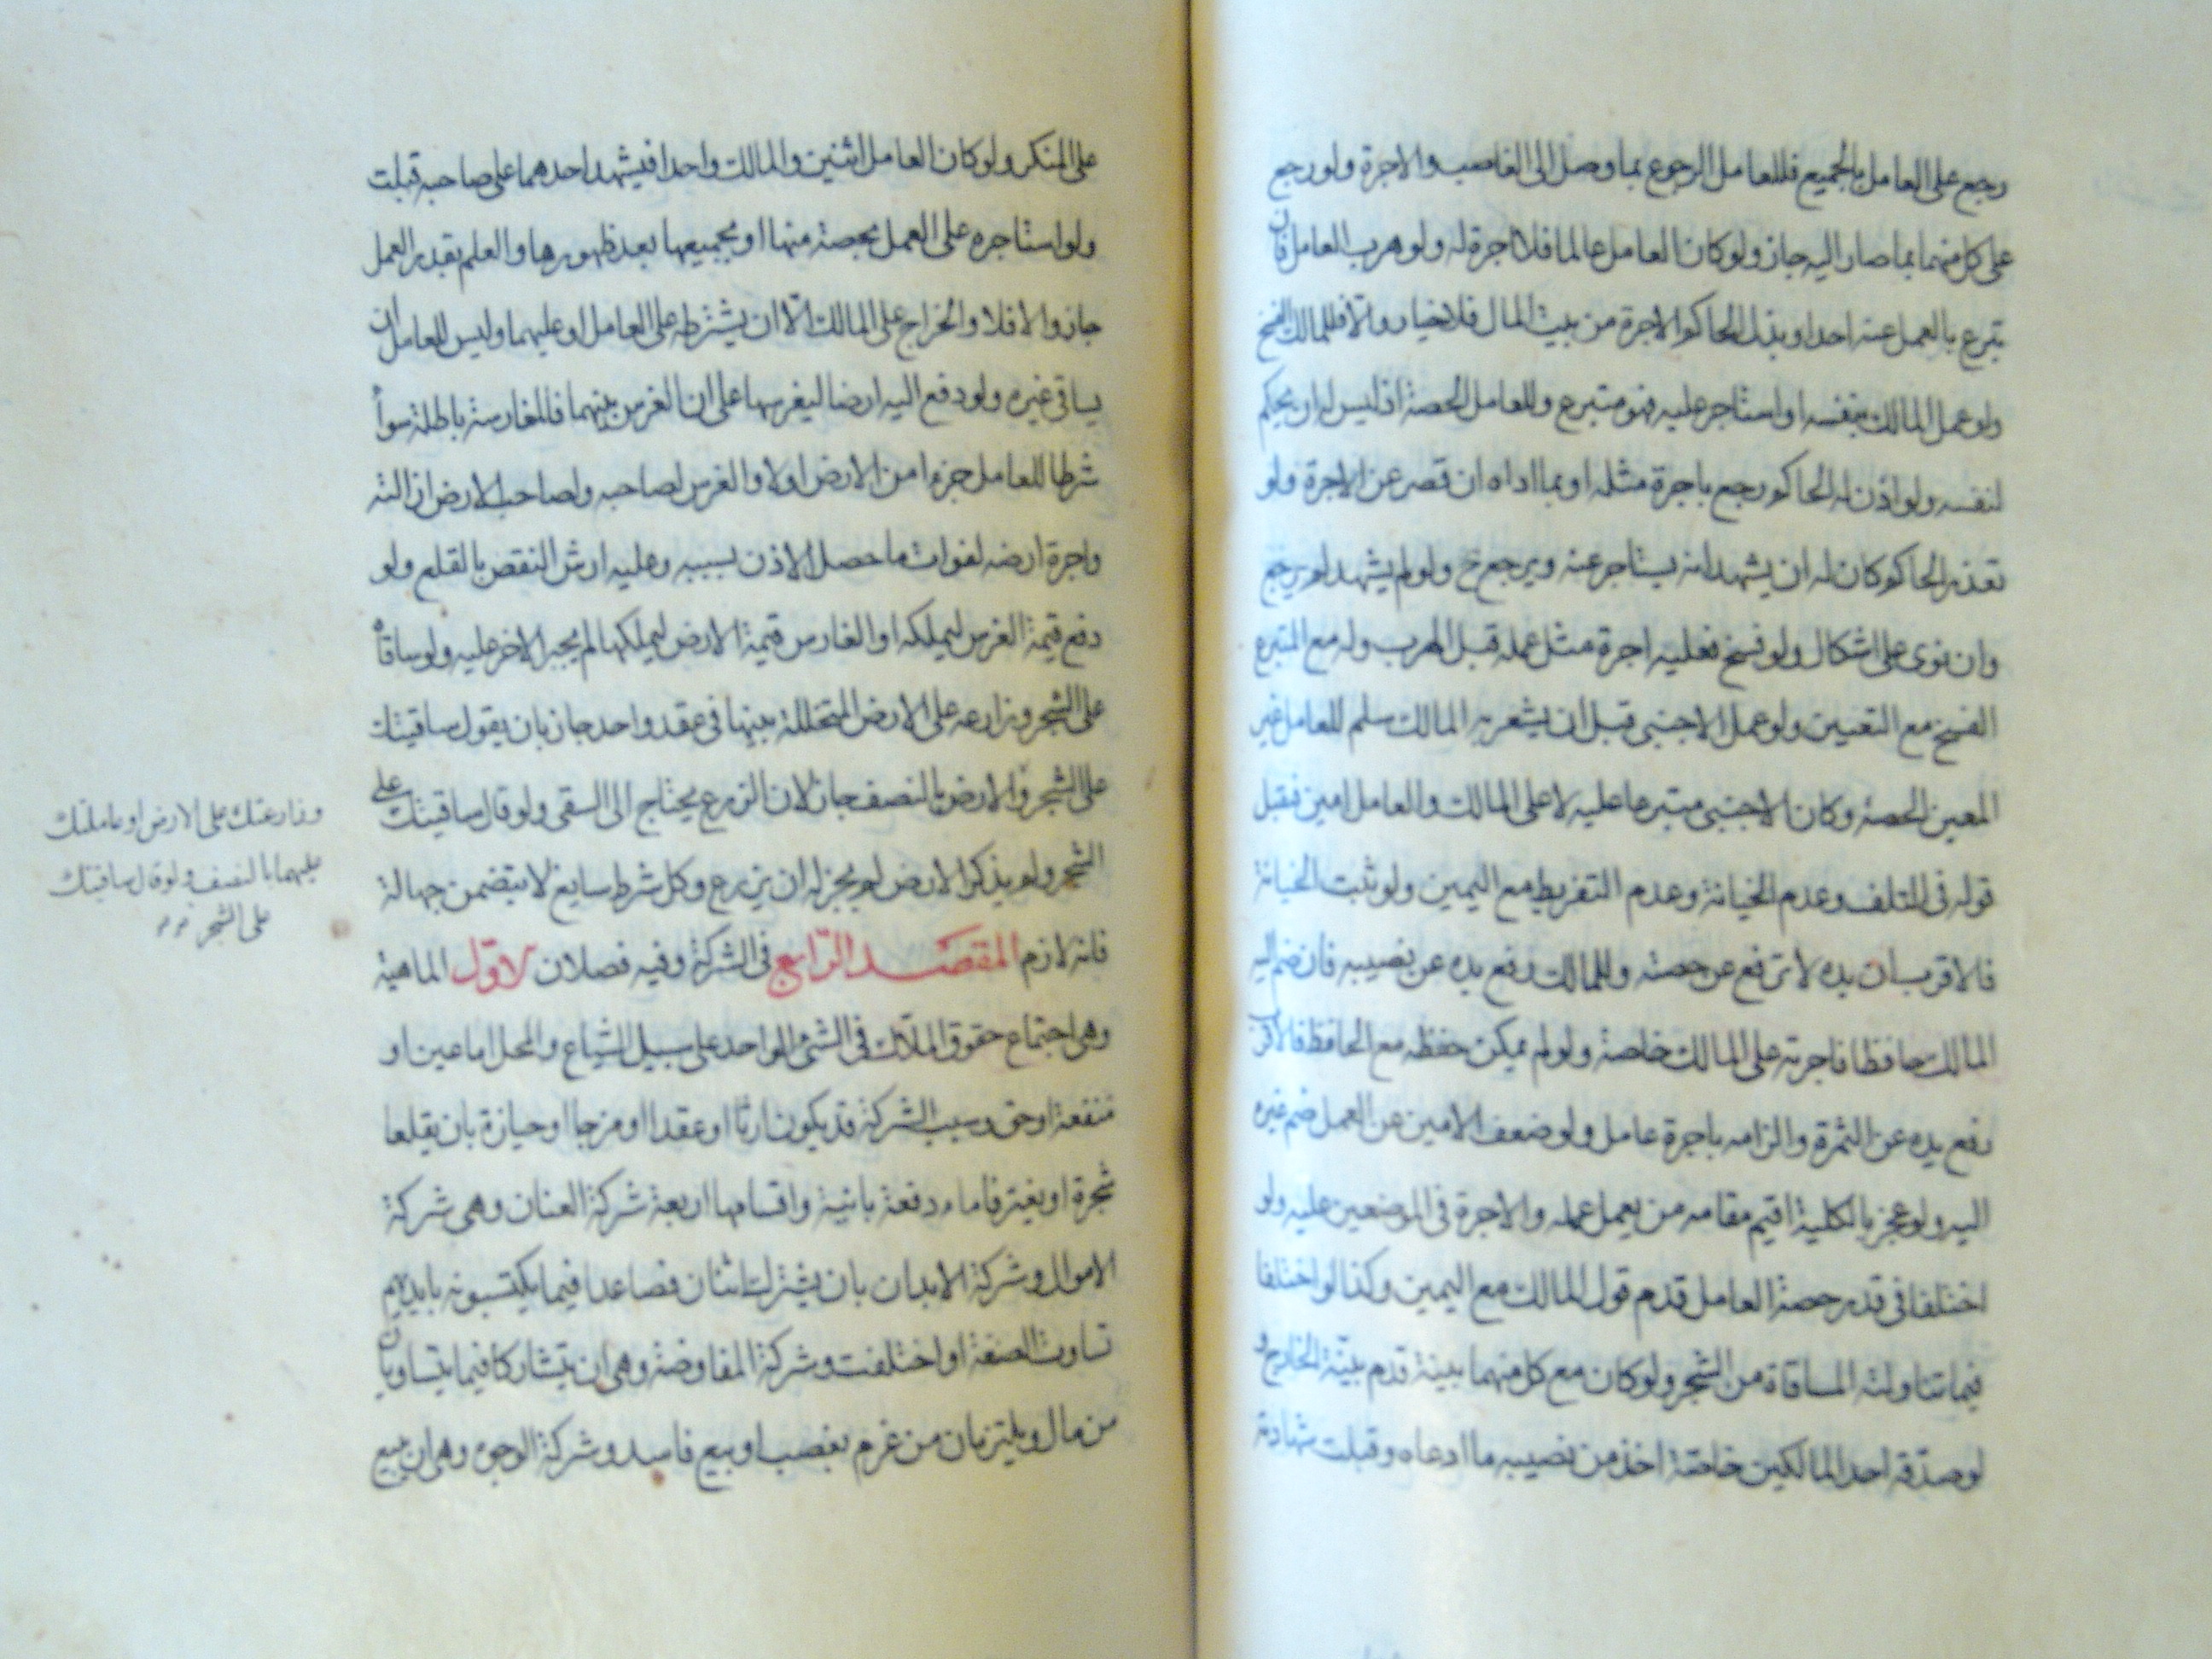 رجع على العامل بالجميع فللعامل الرجوع بما وصل الى الغاصب والاجرة ولو رجع
على كل منهما بما صار اليه جاز ولو كان العامل عالما فلا اجرة له ولو هرب العامل فان
تبرع بالعمل عنه احد او بذل الحاكم الاجرة من بيت المال فلا خيار والا فللمالك الفسخ
ولو عمل المالك بنفسه او استاجر عليه فهو متبرع وللعامل الحصة اذ ليس له ان يحكم
لنفسه ولو اذن له الحاكم رجع باجرة مثله او بما اداه ان قصر عن الاجرة ولو
تعذر الحاكم كان له ان يشهد انه يستاجر عنه ويرجع ح ولو لم يشهد لم يرجع
وان نوى على اشكال ولو فسخ فعليه اجرة مثل عمله قبل الهرب وله مع المتبرع
الفسخ مع التعيين ولو عمل الاجنبى قبل ان يشعر به المالك سلم للعامل غير
المعين الحصة وكان الاجنبى متبرعا عليه لا على المالك والعامل امين فيقبل
قوله فى التلف وعدم الخيانة وعدم التفريط مع اليمين ولو ثبت الخيانة
فالاقرب ان يده لا ترفع عن حصته وللمالك رفع يده عن نصيبه فان ضم اليه
المالك حافظا فاجرته على المالك خاصة ولو لم يمكن حفظه مع الحافظ فالاقرب
رفع يده عن الثمرة والزامه باجرة عامل ولو ضعف الامين عن العمل ضم غيره
اليه ولو عجز بالكلية اقيم مقامه من يعمل عمله والاجرة فى الموضعين عليه ولو
اختلفا فى قدر حصة العامل قدم قول المالك مع اليمين وكذا لو اختلفا
فيما تناولته المساقاة من الشجر ولو كان مع كل منهما بينة قدم بينة الخارج و
لو صدقه احد المالكين خاصة اخذ من نصيبه ما ادعاه وقبلت شهادته
على المنكر ولو كان العامل اثنين والمالك واحدا فيشهد احدهما على صاحبه قبلت
ولو استاجره على العمل بحصة منها او بجميعها بعد ظهورها والعلم بقدر العمل
جاز والا فلا والخراج على المالك الا ان يشترطه على العامل او عليهما وليس للعامل ان
يساقى غيره ولو دفع اليه ارضا ليغرسها على ان الغرس بينهما فالمغارسة باطلة سواء
شرطا للعامل جزءا من الارض اولا والغرس لصاحبه ولصاحب الارض ازالته
واجرة ارضه لفوات ما حصل الاذن بسببه وعليه ارش النقص بالقلع ولو
دفع قيمة الغرس ليملكه او الغارس قيمة الارض ليملكها لم يجبر الاخر عليه ولو ساقاه
على الشجر وزارعه على الارض المتخللة بينها فى عقد واحد جاز بان يقول ساقيتك
على الشجر والارض بالنصف جاز لان الزرع يحتاج الى السقى ولو قال ساقيتك على
الشجر ولم يذكر الارض لم يجز له ان يزرع وكل شرط سايغ لا يتضمن جهالة
فانه لازم المقصد الرابع فى الشركة وفيه فصلان الاول الماهية
وهى اجتماع حقوق الملاك فى الشئ الواحد على سبيل الشياع والمحل اما عين او
منفعة او حق وسبب الشركة قد يكون ارثا او عقدا او مزجا او حيازة بان يقلعا
شجرة او يغترفا ماء دفعة بانية واقسامها اربعة شركة العنان وهى شركة
الاموال وشركة الابدان بان يشترك اثنان فصاعدا فيما يكتسبونه بايديهم
تساوت الصنعة او اختلفت وشركة المفاوضة وهى ان يتشاركا فيما يتساويان
من مال ويلتزمان من غرم بغصب او بيع فاسد وشركة الوجوه وهى ان يبيع
وزارعتك على الارض او عاملتك
عليهما بالنصف ولو قال ساقيتك
على الشجر